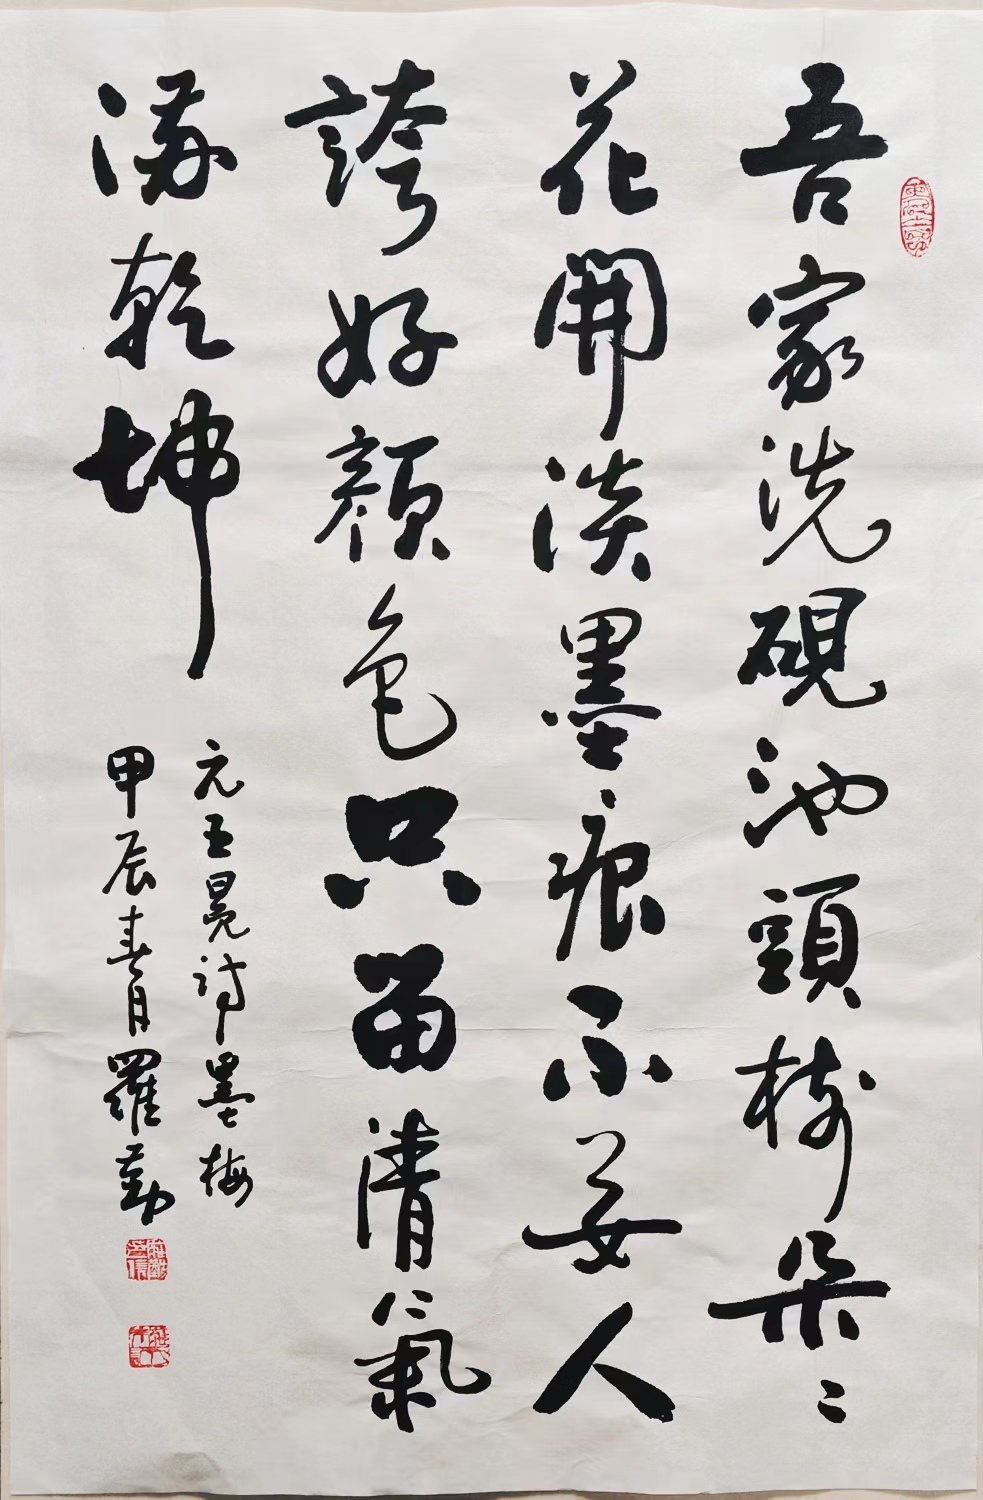 吾家洗硯池頭樹朵〻
花開淡墨痕不要人
誇好顏色只留清氣
滿乾坤
元王冕詩墨梅
甲辰春月羅勤